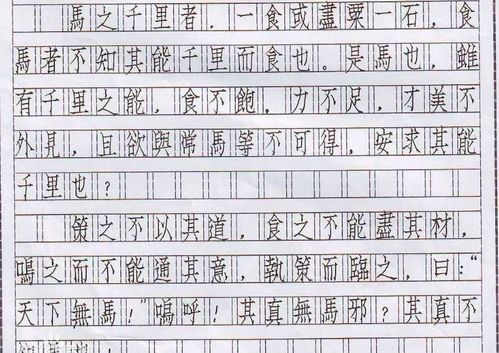 馬之千里者，一食或盡粟一石，食
馬者不知其能千里而食也。是馬也，雖
有千里之能，食不飽，力不足，才美不
外見，且欲與常馬等不可得，安求其能
千里也？
策之不以其道，食之不能盡其材，
鳴之而不能通其意，執策而臨之，曰：“
天下無馬！”嗚呼！其真無馬邪？其真不